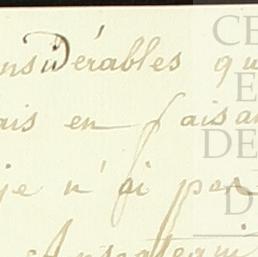 nsidérables qu
ais en faisan
je n'ai pas
CE
E
DE
D